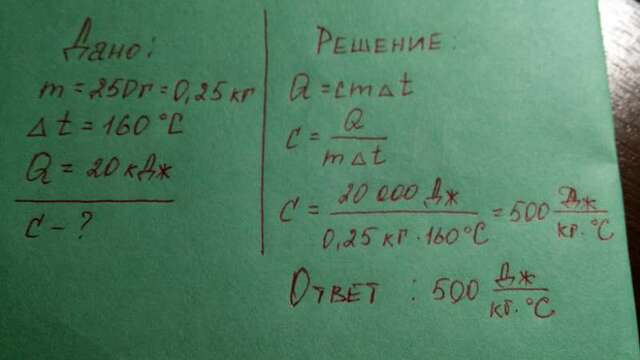 Дано:
m = 250г = 0,25 кг
Δt = 160 °C
Q = 20 кДж
c - ?
РЕШЕНИЕ:
Q = cmΔt
c = Q / mΔt
c = 20 000 Дж / 0,25 кг · 160 °C = 500 Дж / кг · °C
ОТВЕТ : 500 Дж / кг · °C